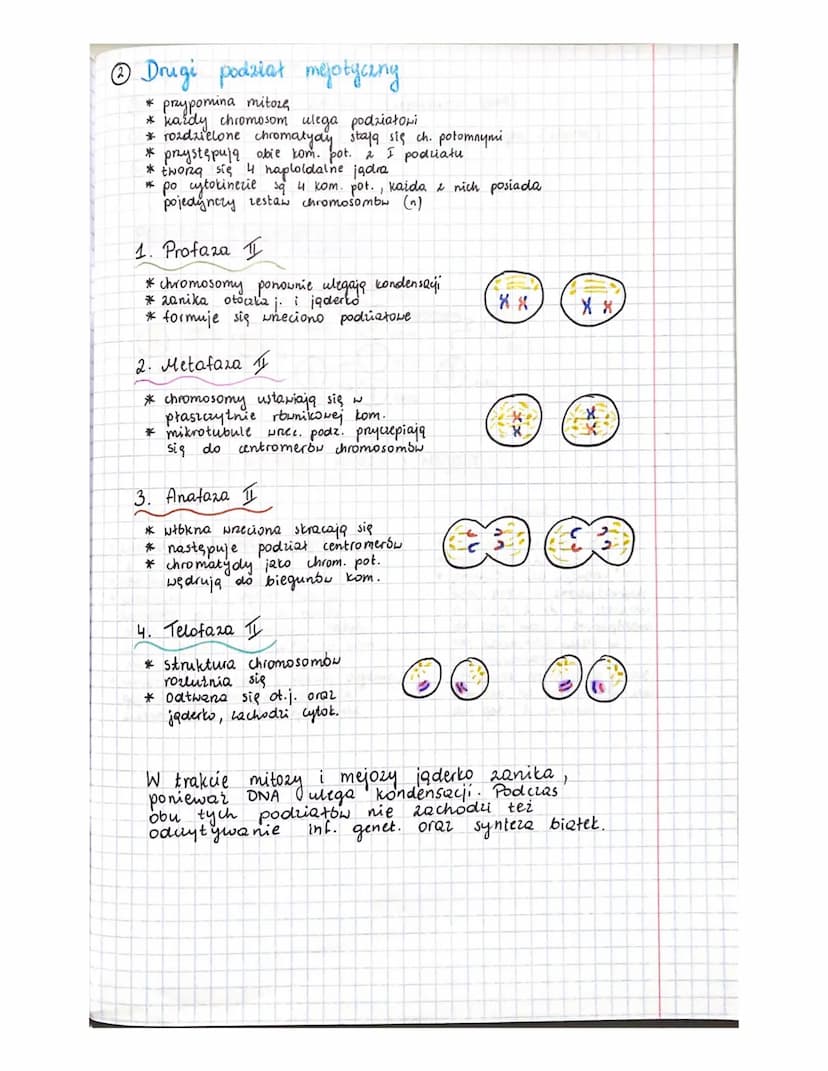 ② Drugi podział mejotyczny
* przypomina mitozę
* każdy chromosom ulega podziałowi
* rozdzielone chromatydy stają się ch. potomnymi
* przystępują obie kom. pot. z I podziału
* tworzą się 4 haploidalne jądra
* po cytokinezie są 4 kom. pot., każda z nich posiada
pojedynczy zestaw chromosomów (n)
1. Profaza II
* chromosomy ponownie ulegają kondensacji
* zanika otoczka j. i jąderko
* formuje się wrzeciono podziałowe
2. Metafaza II
* chromosomy ustawiają się w
płaszczyźnie równikowej kom.
* mikrotubule wrzec. podz. przyczepiają
się do centromerów chromosomów
3. Anafaza II
* włókna wrzeciona skracają się
* następuje podział centromerów
* chromatydy jako chrom. pot.
wędrują do biegunów kom.
4. Telofaza II
* struktura chromosomów
rozluźnia się
* odtwarza się ot.j. oraz
jąderko, zachodzi cytok.
W trakcie mitozy i mejozy jąderko zanika,
ponieważ DNA ulega kondensacji. Podczas
obu tych podziałów nie zachodzi też
odczytywanie inf. genet. oraz synteza białek.